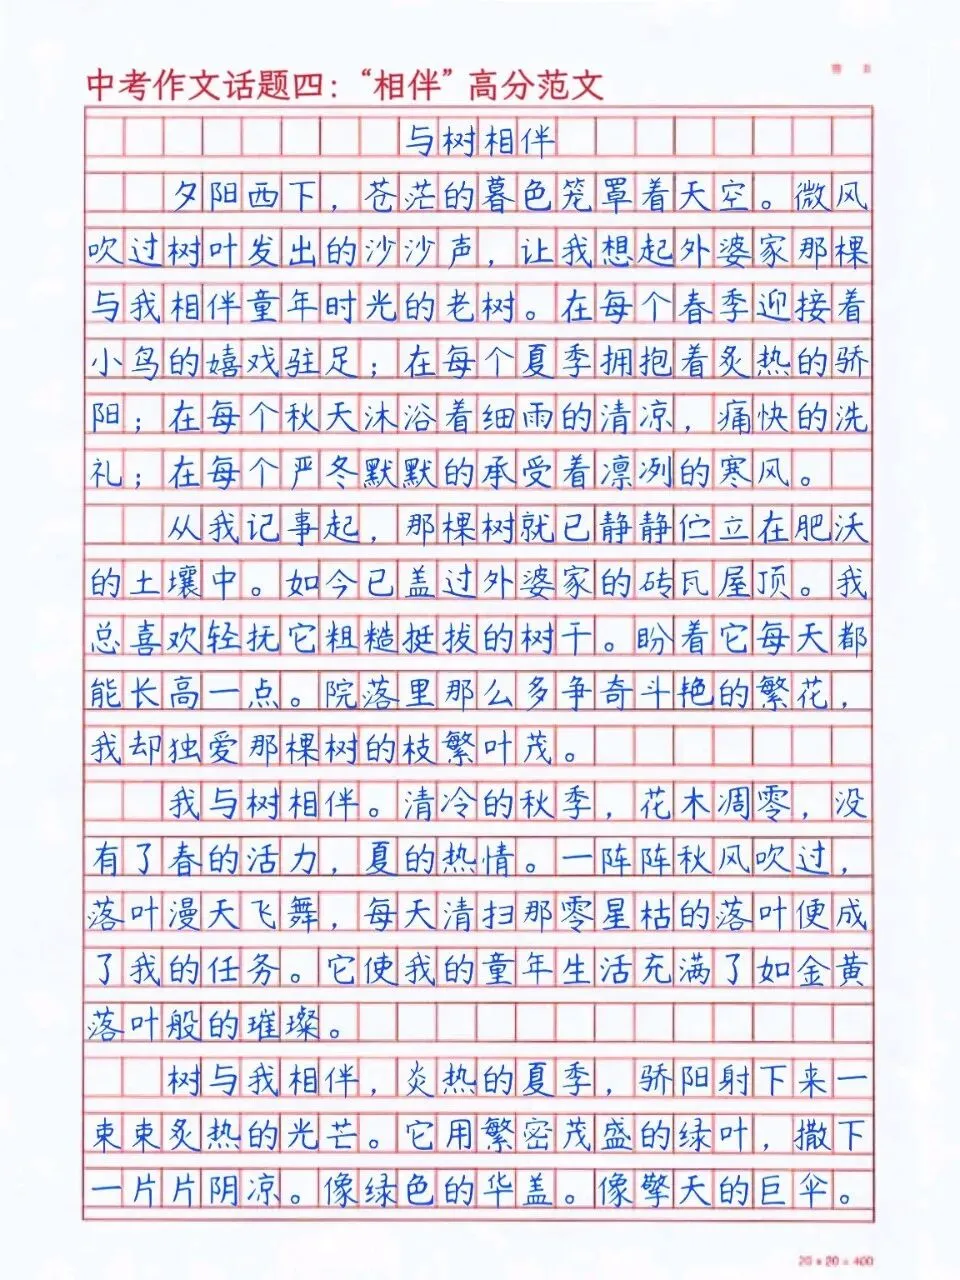 中考作文话题四：“相伴”高分范文
与树相伴
夕阳西下，苍茫的暮色笼罩着天空。微风
吹过树叶发出的沙沙声，让我想起外婆家那棵
与我相伴童年时光的老树。在每个春季迎接着
小鸟的嬉戏驻足；在每个夏季拥抱着炙热的骄
阳；在每个秋天沐浴着细雨的清凉，痛快的洗
礼；在每个严冬默默的承受着凛冽的寒风。
从我记事起，那棵树就已静静伫立在肥沃
的土壤中。如今已盖过外婆家的砖瓦屋顶。我
总喜欢轻抚它粗糙挺拔的树干。盼着它每天都
能长高一点。院落里那么多争奇斗艳的繁花，
我却独爱那棵树的枝繁叶茂。
我与树相伴。清冷的秋季，花木凋零，没
有了春的活力，夏的热情。一阵阵秋风吹过，
落叶漫天飞舞，每天清扫那零星枯的落叶便成
了我的任务。它使我的童年生活充满了如金黄
落叶般的璀璨。
树与我相伴，炎热的夏季，骄阳射下来一
束束炙热的光芒。它用繁密茂盛的绿叶，撒下
一片片阴凉。像绿色的华盖。像擎天的巨伞。
20×20=400